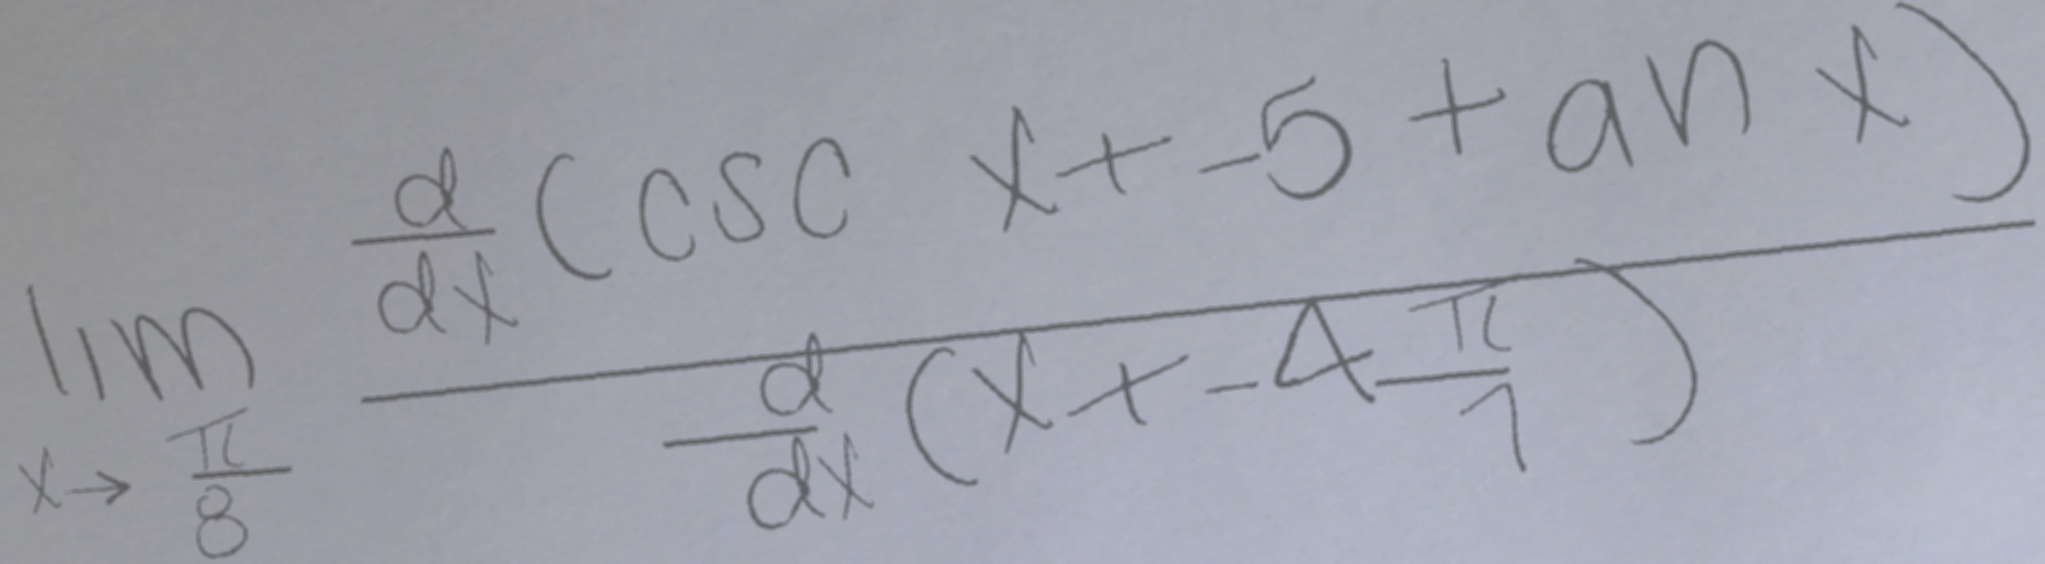 \lim_{x \to \frac{\pi}{8}} \frac{\frac{d}{dx}(\csc x + -5 + an x)}{\frac{d}{dx}(x + -4 \frac{\pi}{1})}